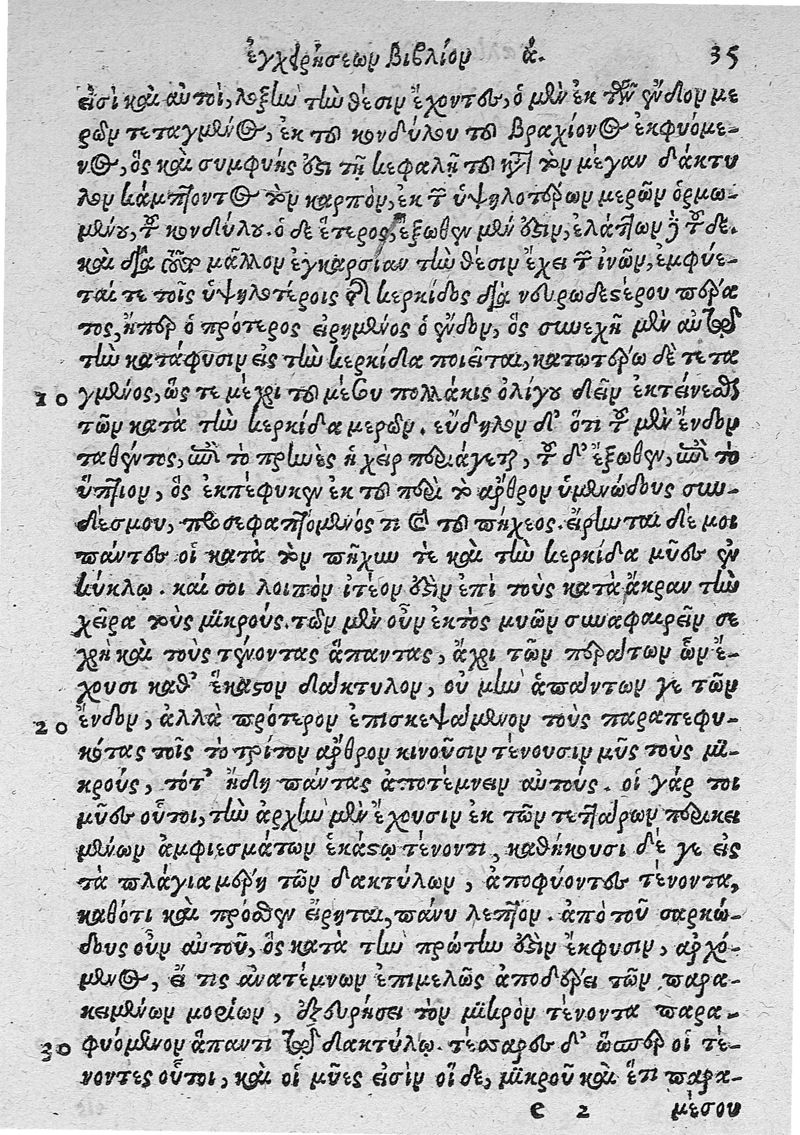 ἐγχειρήσεων βιβλίον ά. 35
εἰσὶ καὶ αὐτοί, λοξὴν τὴν θέσιν ἔχοντες, ὁ μὲν ἐκ τῶν ἔνδον με
ρῶν τεταγμένος, ἐκ τοῦ κονδύλου τοῦ βραχίονος ἐκφυόμε-
νος, ὃς καὶ συμφυής ἐστι τῇ κεφαλῇ τοῦ κατὰ τὸν μέγαν δάκτυ
λον κάμπτοντος τὸν καρπὸν, ἐκ τῶν ὑψηλοτέρων μερῶν ὁρμω-
μένου, τοῦ κονδύλου. ὁ δὲ ἕτερος, ἔξωθεν μέν ἐστιν, ἐλάττων δὲ τοῦδε.
καὶ διὰ τοῦτο μᾶλλον ἐγκαρσίαν τὴν θέσιν ἔχει τῶν ἰνῶν, ἐμφύε-
ταί τε τοῖς ὑψηλοτέροις τῆς κερκίδος διὰ νευρωδεστέρου πέρα
τος, ἤπερ ὁ πρότερος εἰρημένος ὁ ἔνδον, ὃς συνεχῆ μὲν αὐτῷ
τὴν κατάφυσιν εἰς τὴν κερκίδα ποιεῖται, κατωτέρω δὲ τετα
10 γμένος, ὥς τε μέχρι τοῦ μέσου πολλάκις ὀλίγου δεῖν ἐκτείνεσθαι
τῶν κατὰ τὴν κερκίδα μερῶν. εὔδηλον δ' ὅτι τοῦ μὲν ἔνδον
ταθέντος, ἐπὶ τὸ πρηνὲς ἡ χεὶρ περιάγεται, τοῦ δ' ἔξωθεν, ἐπὶ τὸ
ὕπτιον, ὃς ἐκπέφυκεν ἐκ τοῦ περὶ τὸ ἄρθρον ὑμενώδους συν-
δέσμου, προσεφαπτόμενός τι καὶ τοῦ πήχεος. εἴρηνταί δέ μοι
πάντες οἱ κατὰ τὸν πῆχυν τὲ καὶ τὴν κερκίδα μῦες ἐν
κύκλῳ. καί σοι λοιπὸν ἰτέον ἐστὶν ἐπὶ τοὺς κατὰ ἄκραν τὴν
χεῖρα τοὺς μικρούς. τῶν μὲν οὖν ἐκτὸς μυῶν συναφαιρεῖν σε
χρὴ καὶ τοὺς τένοντας ἅπαντας, ἄχρι τῶν περάτων ὧν ἔ-
χουσι καθ' ἕκαστον δάκτυλον, οὐ μὴν ἁπάντων γε τῶν
20 ἔνδον, ἀλλὰ πρότερον ἐπισκεψάμενον τοὺς παραπεφυ-
κότας τοῖς τὸ τρίτον ἄρθρον κινοῦσιν τένουσιν μῦς τοὺς μι-
κρούς, τότ' ἤδη πάντας ἀποτέμνειν αὐτούς. οἱ γάρ τοι
μῦες οὗτοι, τὴν ἀρχὴν μὲν ἔχουσιν ἐκ τῶν τεττάρων περικει
μένων ἀμφιεσμάτων ἑκάστῳ τένοντι, καθήκουσι δέ γε εἰς
τὰ πλάγια μέρη τῶν δακτύλων, ἀποφύοντες τένοντα,
καθότι καὶ πρόσθεν εἴρηται, πάνυ λεπτόν. ἀπὸ τοῦ σαρκώ-
δους οὖν αὐτοῦ, ὃς κατὰ τὴν πρώτην ἐστὶν ἔκφυσιν, ἀρχό-
μενος, εἴ τις ἀνατέμνων ἐπιμελῶς ἀποδέρει τῶν παρα-
κειμένων μορίων, ἐξευρήσει τὸν μικρὸν τένοντα παρα-
30 φυόμενον ἅπαντι τῷ δακτύλῳ. τέσσαρες δ' ὥσπερ οἱ τέ-
νοντες οὗτοι, καὶ οἱ μῦες εἰσὶν οἵδε, μικροῦ καὶ ἔτι παρα-
e 2 μέσου